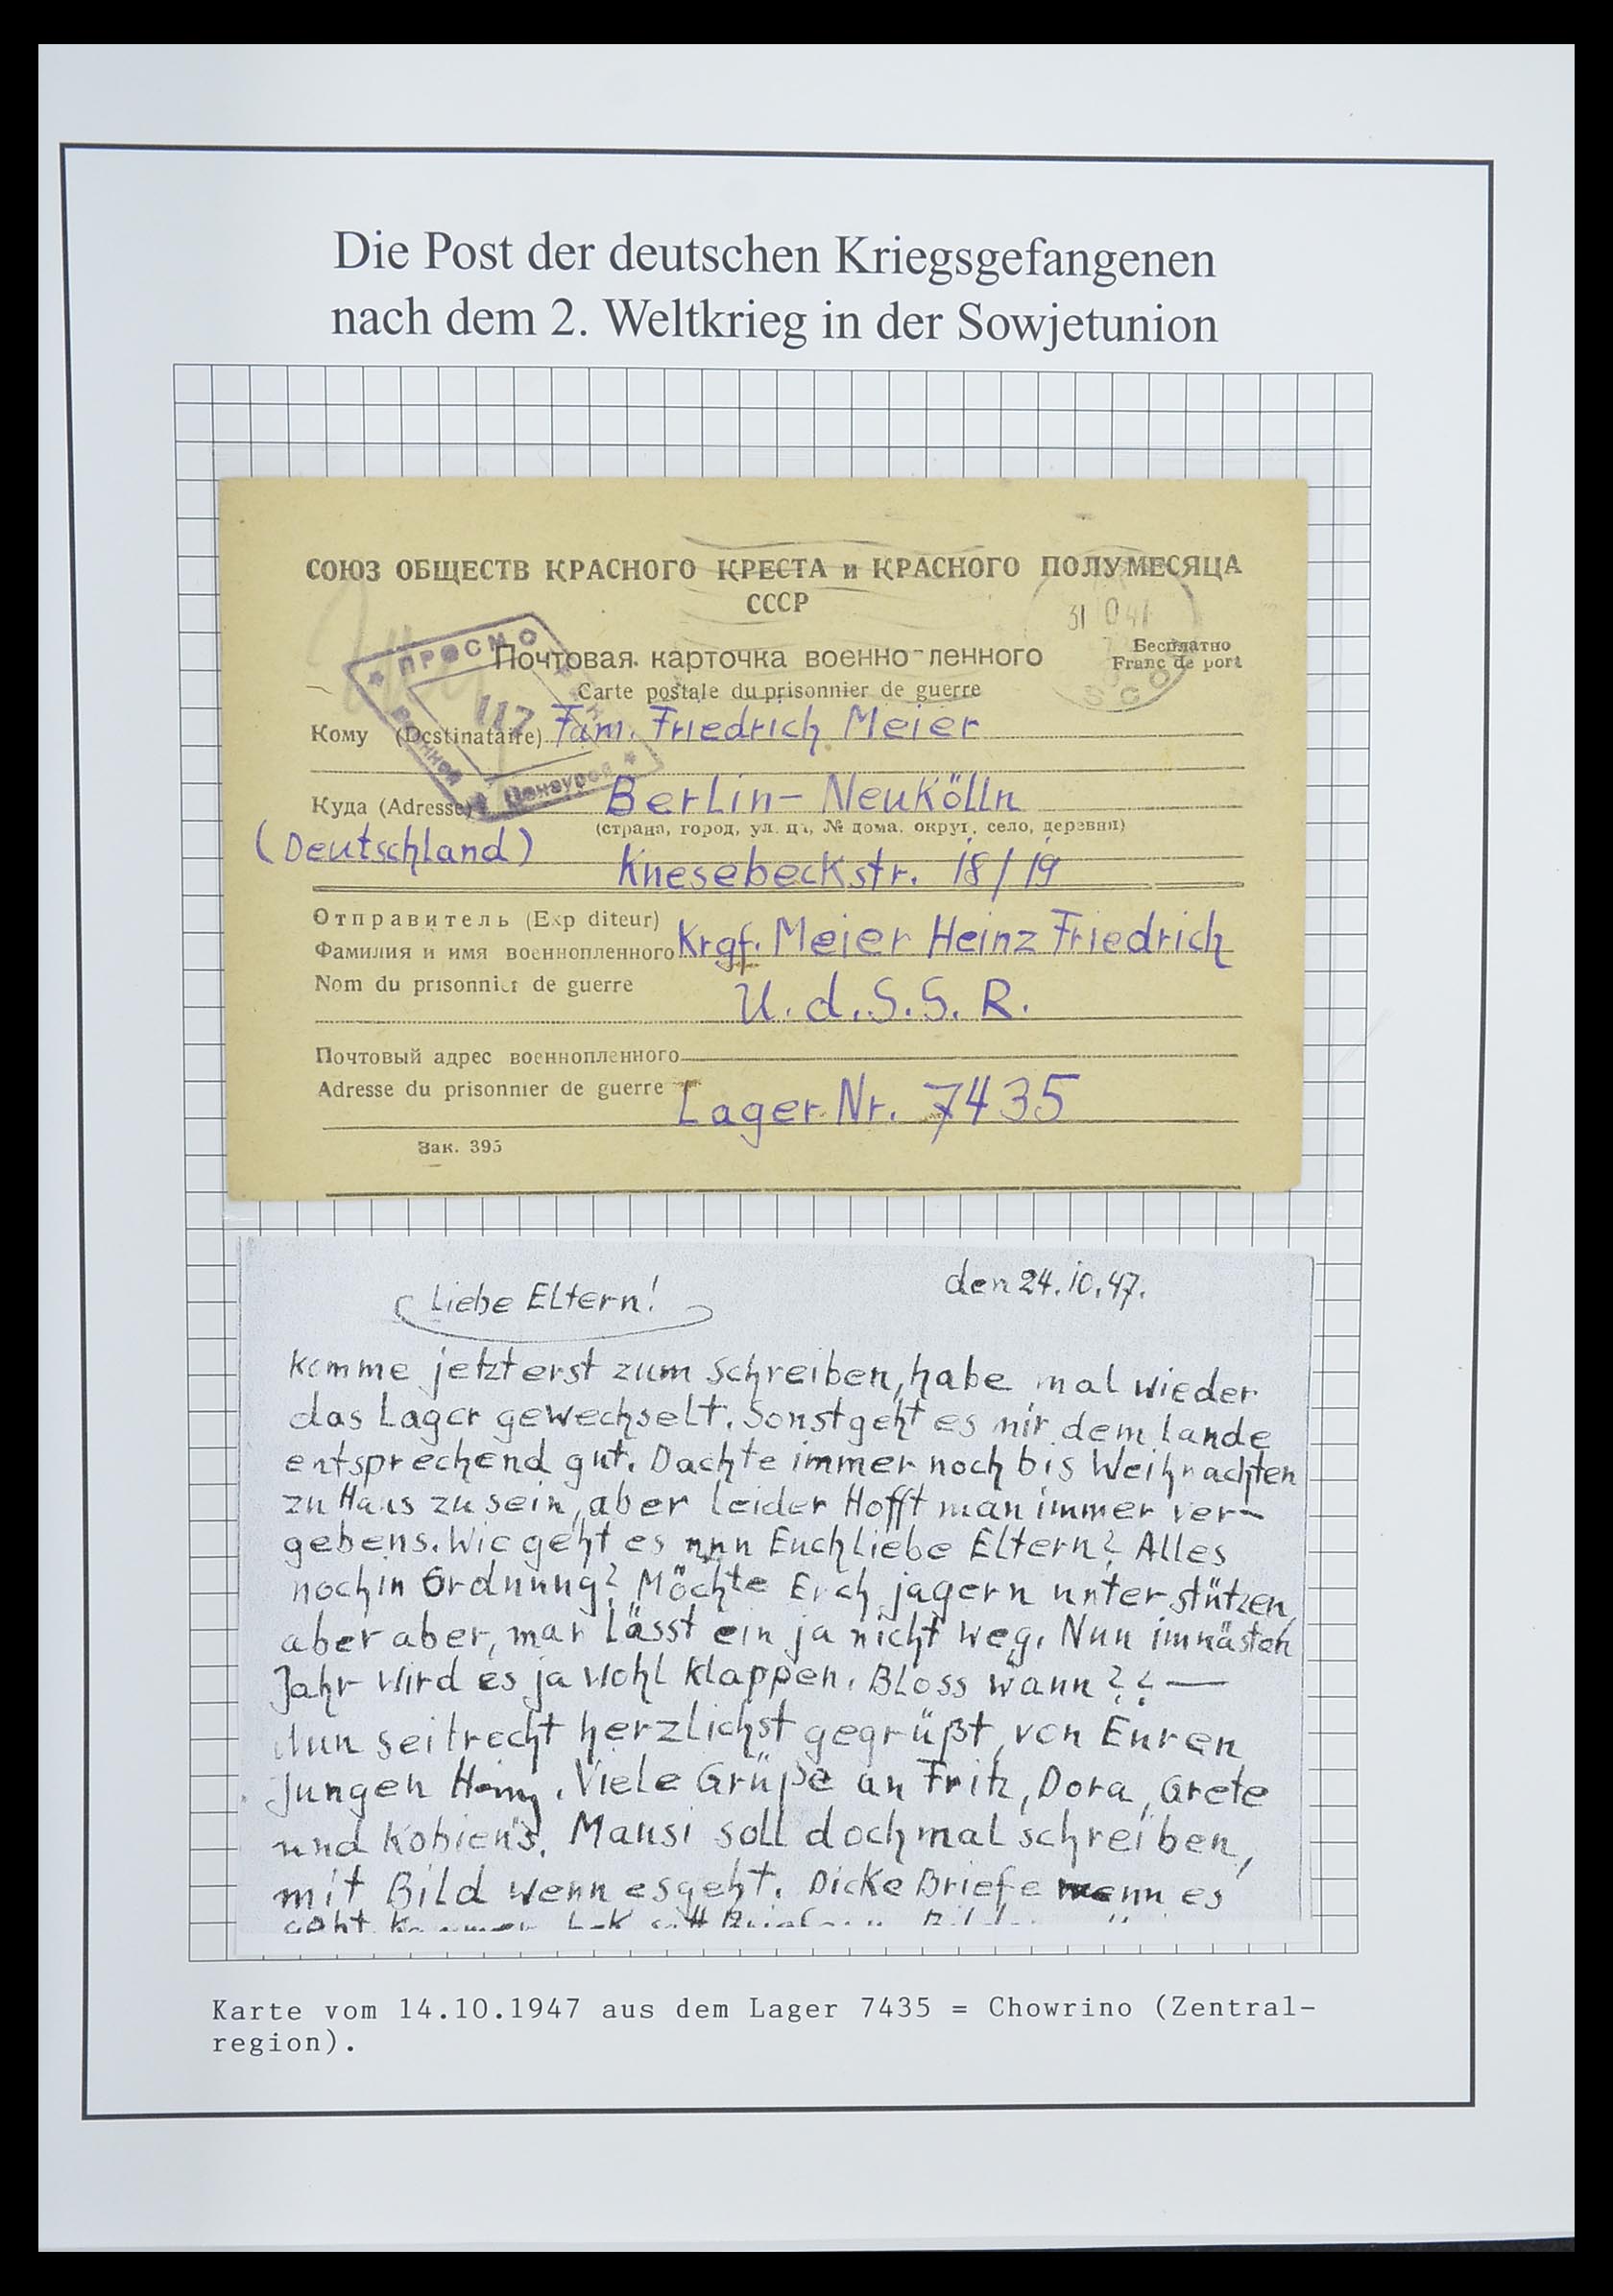 Die Post der deutschen Kriegsgefangenen
nach dem 2. Weltkrieg in der Sowjetunion
СОЮЗ ОБЩЕСТВ КРАСНОГО КРЕСТА и КРАСНОГО ПОЛУМЕСЯЦА
СССР
31 10 47
ПРОСМО
117
Военной
Цензурой
Почтовая карточка военно-ленного
Бесплатно
Franc de port
Carte postale du prisonnier de guerre
Кому (Destinataire) Fam. Friedrich Meier
Куда (Adresse) Berlin- Neukölln
(страна, город, ул. , № дома, округ, село, деревня)
(Deutschland)
Knesebeckstr. 18/19
Отправитель (Exp diteur)
Фамилия и имя военнопленного Krgf. Meier Heinz Friedrich
Nom du prisonnier de guerre
U.d.S.S.R.
Почтовый адрес военнопленного
Adresse du prisonnier de guerre Lager Nr. 7435
Зак. 395
Liebe Eltern! den 24.10.47.
Komme jetzt erst zum schreiben, habe mal wieder
das Lager gewechselt. Sonst geht es mir dem Lande
entsprechend gut. Dachte immer noch bis Weihnachten
zu Haus zu sein, aber leider Hofft man immer ver-
gebens. Wie geht es nun Euch liebe Eltern? Alles
noch in Ordnung? Möchte Euch ja gern unterstützen,
aber aber, man lässt ein ja nicht weg. Nun im nästen
Jahr wird es ja wohl klappen. Bloss wann?? —
Nun seit recht herzlichst gegrüßt, von Euren
Jungen Heinz. Viele Grüße an Fritz, Dora, Grete
und Kobien's. Mausi soll doch mal schreiben,
mit Bild wenn es geht. Dicke Briefe wenn es
geht
Karte vom 14.10.1947 aus dem Lager 7435 = Chowrino (Zentral-
region).